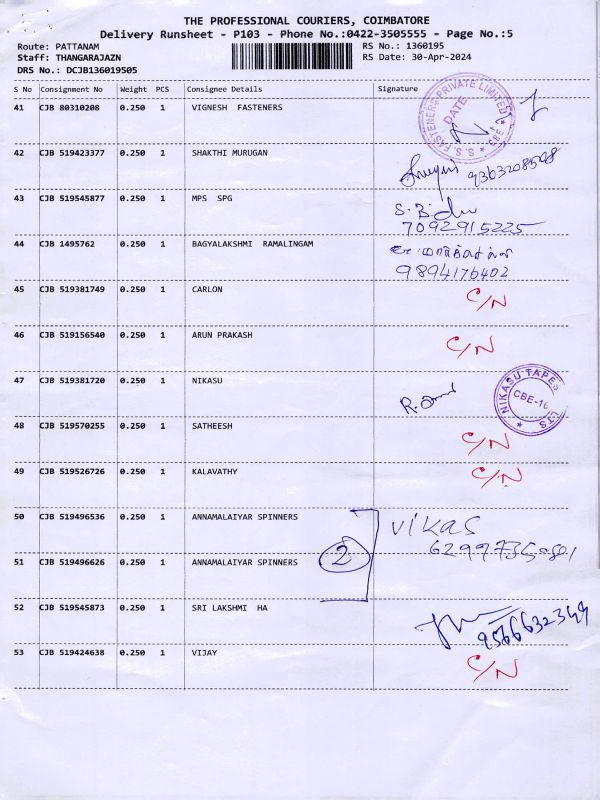 THE PROFESSIONAL COURIERS, COIMBATORE
Delivery Runsheet - P103 - Phone No.:0422-3505555 - Page No.:5
Route: PATTANAM RS No.: 1360195
Staff: THANGARAJAZN RS Date: 30-Apr-2024
DRS No.: DCJB136019505
S No Consignment No Weight PCS Consignee Details Signature
41 CJB 80310208 0.250 1 VIGNESH FASTENERS
S. S. FASTENERS PRIVATE LIMITED CBE
DATE
42 CJB 519423377 0.250 1 SHAKTHI MURUGAN
43 CJB 519545877 0.250 1 MPS SPG
7092915225
44 CJB 1495762 0.250 1 BAGYALAKSHMI RAMALINGAM
9894176402
45 CJB 519381749 0.250 1 CARLON C/N
46 CJB 519156540 0.250 1 ARUN PRAKASH C/N
47 CJB 519381720 0.250 1 NIKASU
NIKASU TAPES
CBE-16
48 CJB 519570255 0.250 1 SATHEESH C/N
49 CJB 519526726 0.250 1 KALAVATHY C/N
50 CJB 519496536 0.250 1 ANNAMALAIYAR SPINNERS Vikas
51 CJB 519496626 0.250 1 ANNAMALAIYAR SPINNERS 2
52 CJB 519545873 0.250 1 SRI LAKSHMI HA
9566632349
53 CJB 519424638 0.250 1 VIJAY C/N